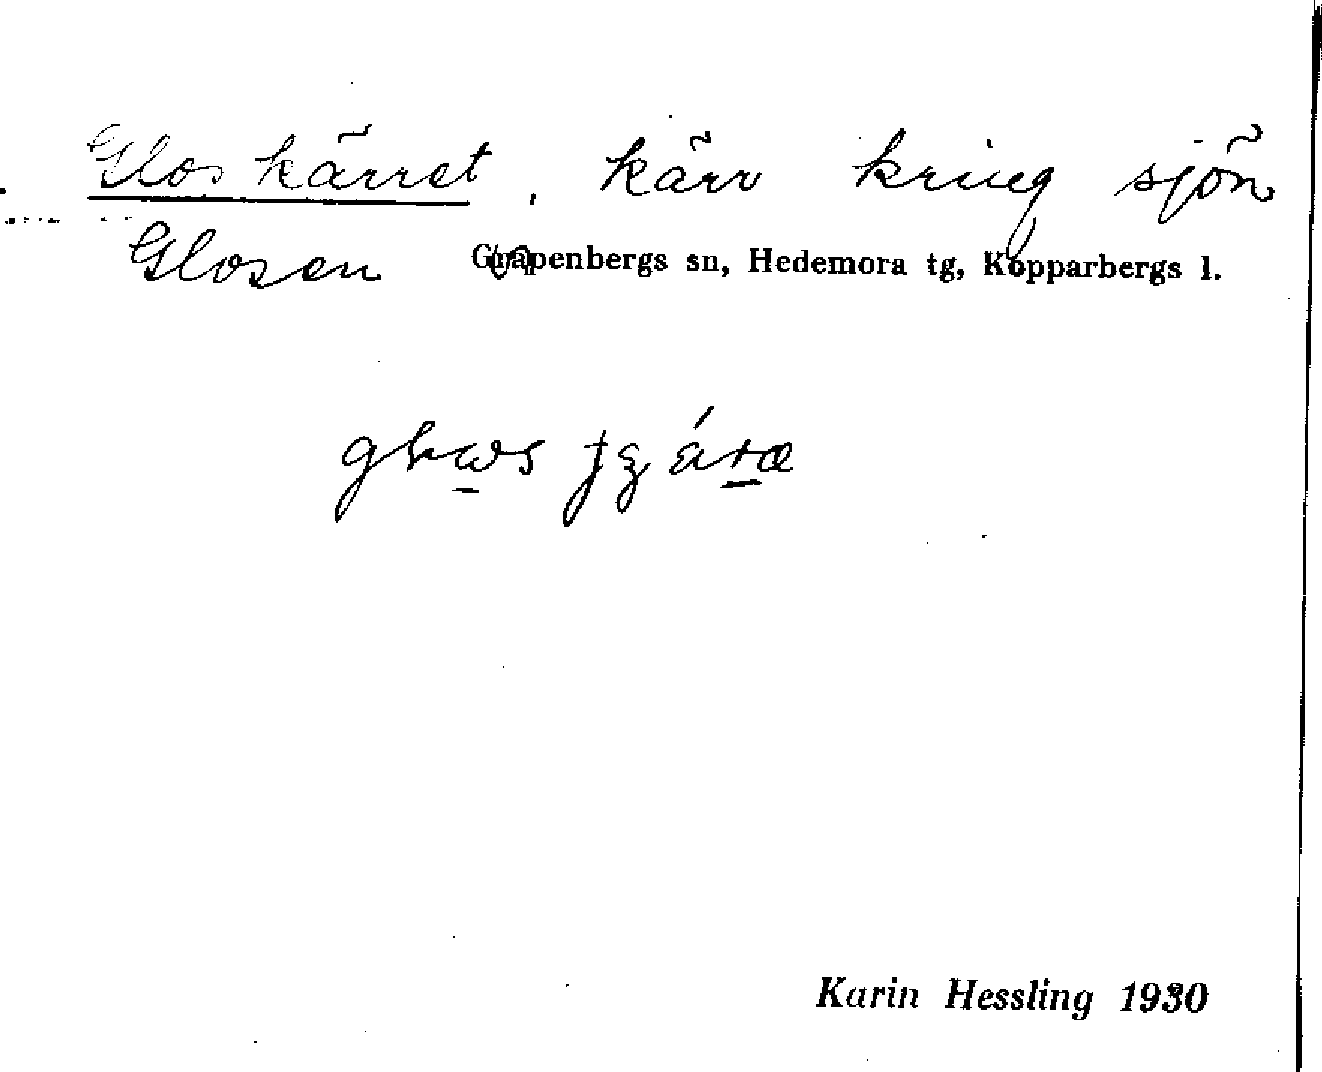 Gloskärret, kärr kring sjön
Glosen Garpenbergs sn, Hedemora tg, Kopparbergs l.
Karin Hessling 1930